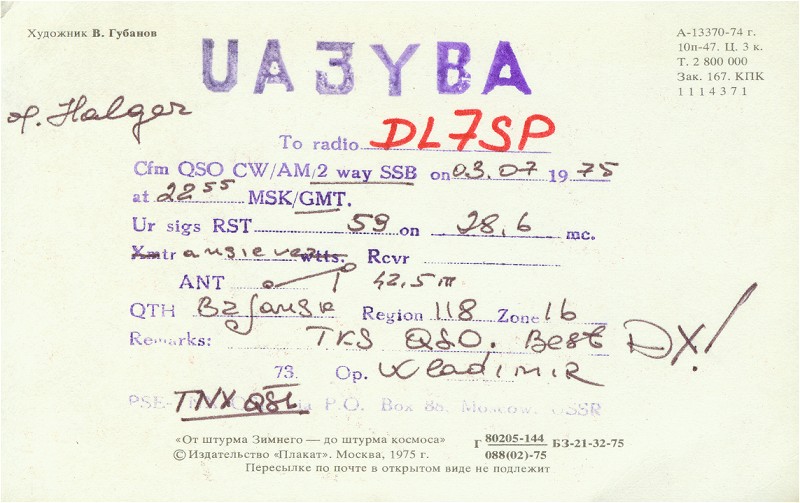 Художник В. Губанов
А-13370-74 г.
10п-47. Ц. 3 к.
Т. 2 800 000
Зак. 167. КПК
1 1 1 4 3 7 1
UA3YBA
Halger
To radio DL7SP
Cfm QSO CW/AM/2 way SSB on 03.07 1975
at 22 55 MSK/GMT.
Ur sigs RST 59 on 28,6 mc.
Xmtr wtts. Rcvr
ANT 42,5 m
QTH Brjansk Region 118 Zone 16
Remarks: TKS QSO. Best DX!
73. Op. Wladimir
PSE TNX QSL via P.O. Box 88, Moscow, USSR
«От штурма Зимнего — до штурма космоса»
© Издательство «Плакат». Москва, 1975 г.
Г 80205-144 / 088(02)-75 БЗ-21-32-75
Пересылке по почте в открытом виде не подлежит